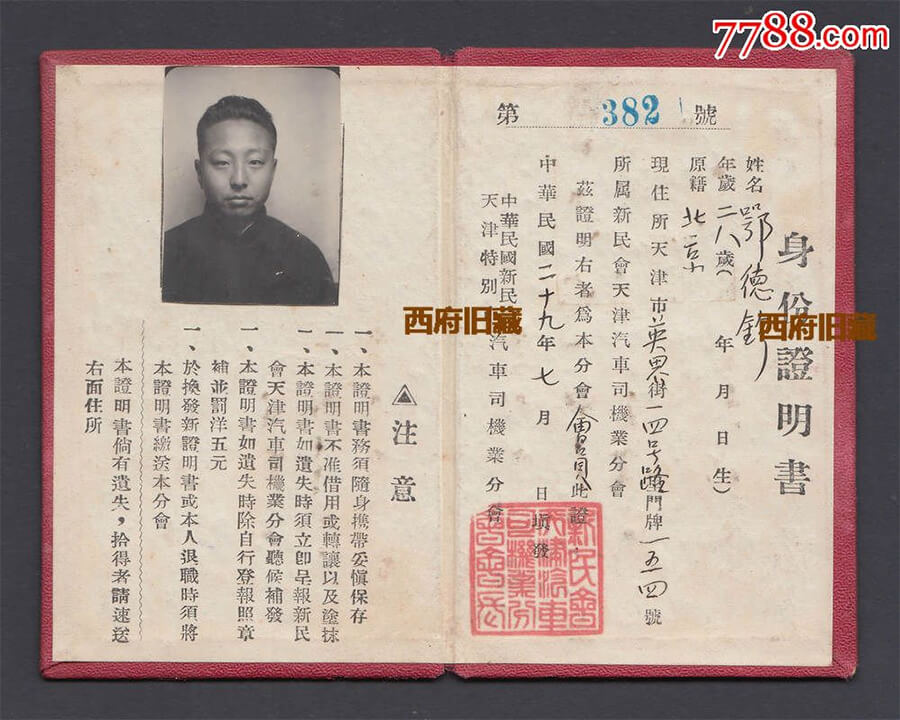 7788.com
第 382 號
身份證明書
姓名 鄂德鈞
年歲 二八歲( 年 月 日生)
原籍 北京
現住所天津市英界街一四号路門牌一五四號
所屬新民會天津汽車司機業分會
茲證明右者為本分會會員此證
中華民國二十九年七月 日填發
中華民國新民
天津特別 汽車司機業分會
西府旧藏
西府旧藏
▲注意
一、本證明書務須隨身携帶妥慎保存
一、本證明書不准借用或轉讓以及塗抹
一、本證明書如遺失時須立即呈報新民
會天津汽車司機業分會聽候補發
一、本證明書如遺失時除自行登報照章
補並罰洋五元
一、於換發新證明書或本人退職時須將
本證明書繳送本分會
本證明書倘有遺失，拾得者請速送
右面住所